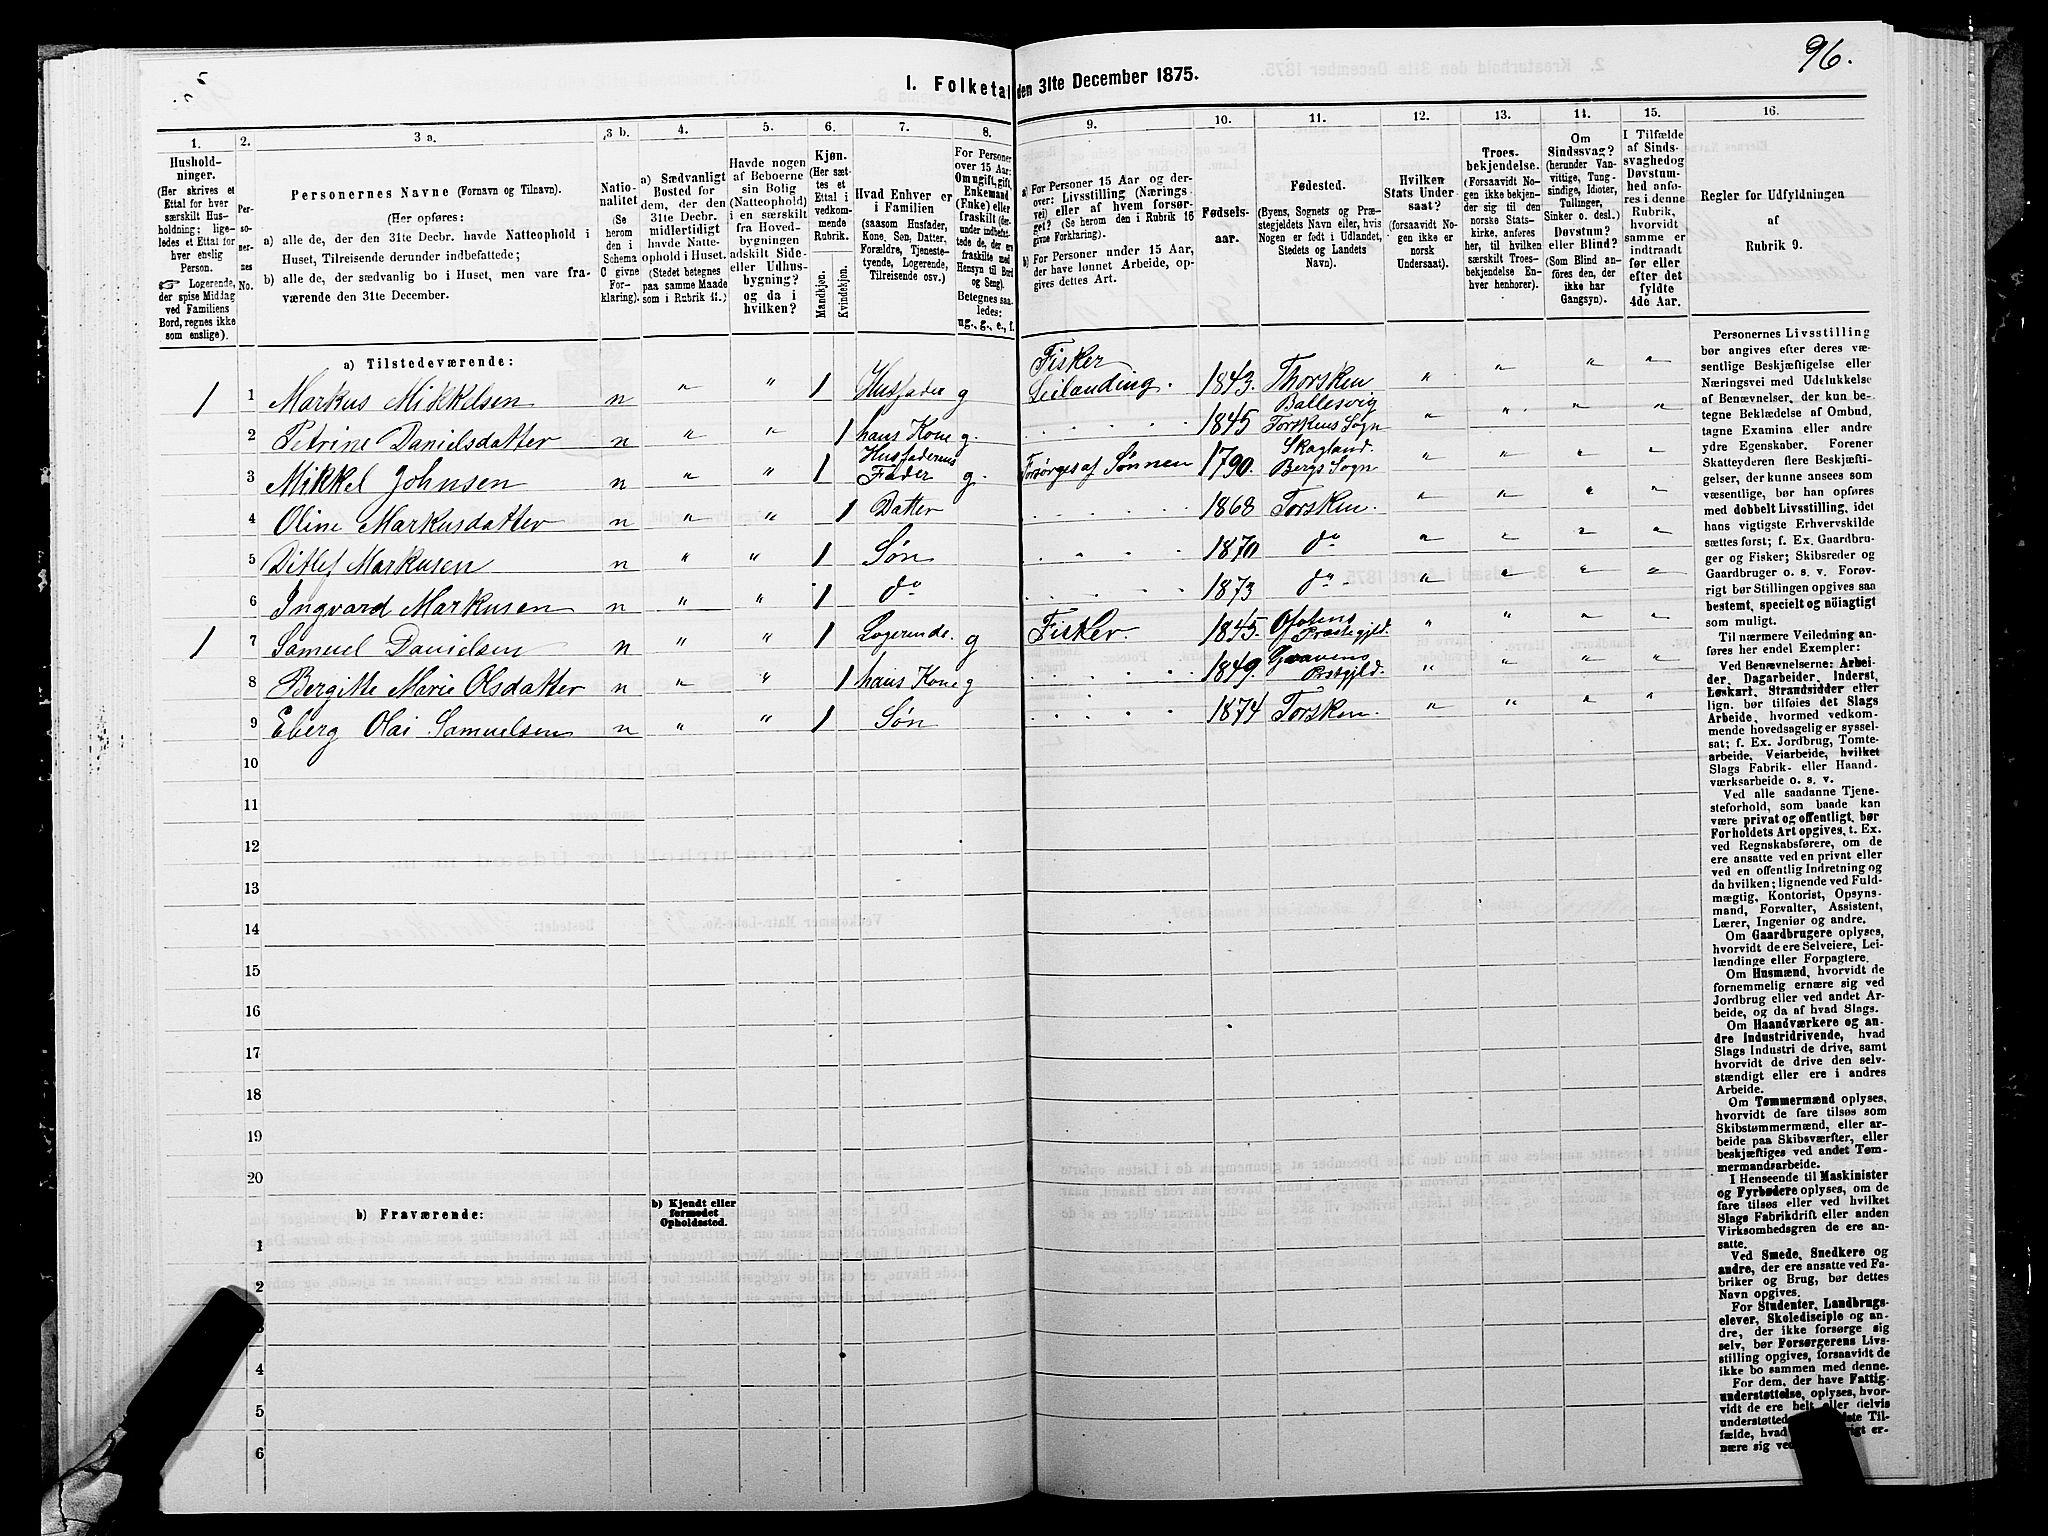 96.
I. Folketal den 31te December 1875.
1. 2. 3 a. 3 b. 4. 5. 6. 7. 8. 9. 10. 11. 12. 13. 14. 15. 16.
Hushold-
ninger.
(Her skrives et
Ettal for hver
særskilt Hus-
holdning; lige-
ledes et Ettal for
hver enslig
Person.
☞ Logerende,
der spise Middag
ved Familiens
Bord, regnes ikke
som enslige).
Per-
so-
ner-
nes
No.
Personernes Navne (Fornavn og Tilnavn).
(Her opføres:
a) alle de, der den 31te Decbr. havde Natteophold i
Huset, Tilreisende derunder indbefattede;
b) alle de, der sædvanlig bo i Huset, men vare fra-
værende den 31te December.
Natio-
nalitet
(Se
herom
den i
Schema
C givne
For-
klaring).
a) Sædvanligt
Bosted for
dem, der den
31te Decbr.
midlertidigt
havde Natte-
ophold i Huset.
(Stedet betegnes
paa samme Maade
som i Rubrik 11.)
Havde nogen
af Beboerne
sin Bolig
(Natteophold)
i en særskilt
fra Hoved-
bygningen
adskilt Side-
eller Udhus-
bygning?
og da i
hvilken?
Kjøn.
(Her sæt-
tes et
Ettal i
vedkom-
mende
Rubrik.
Mandkjøn.
Kvindekjøn.
Hvad Enhver er
i Familien
(saasom Husfader,
Kone, Søn, Datter,
Forældre, Tjeneste-
tyende, Logerende,
Tilreisende osv.)
For Personer
over 15 Aar:
Om ugift, gift,
Enkemand
(Enke) eller
fraskilt (der-
under indbefat-
tede de, der ere
fraskilte med
Hensyn til Bord
og Seng).
Betegnes saa-
ledes:
ug., g., e., f.
a) For Personer 15 Aar og der-
over: Livsstilling (Nærings-
vei) eller af hvem forsør-
get? (Se herom den i Rubrik 16
givne Forklaring).
b) For Personer under 15 Aar,
der have lønnet Arbeide, op-
gives dettes Art.
Fødsels-
aar.
Fødested.
(Byens, Sognets og Præ-
stegjeldets Navn eller, hvis
Nogen er født i Udlandet,
Stedets og Landets
Navn).
Hvilken
Stats Under-
saat?
(forsaavidt No-
gen ikke er
norsk
Undersaat).
Troes-
bekjendelse.
(Forsaavidt No-
gen ikke bekjen-
der sig til den
norske Stats-
kirke, anføres
her, til hvilken
særskilt Troes-
bekjendelse En-
hver henhører).
Om
Sindssvag?
(herunder Van-
vittige, Tung-
sindige, Idioter,
Tullinger,
Sinker o. desl.)
Døvstum?
eller Blind?
(Som Blind an-
føres den, der
ikke har
Gangsyn).
I Tilfælde
af Sinds-
svaghed og
Døvstum-
hed anfø-
res i denne
Rubrik,
hvorvidt
samme er
indtraadt
før eller
efter det
fyldte
4de Aar.
Regler for Udfyldningen
af
Rubrik 9.
a) Tilstedeværende:
1 1 Markus Mikkelsen n " " 1 Husfader g Fisker Leilænding. 1843. Thorsken " " " "
2 Petrine Danielsdatter n " " 1 hans Kone g. 1845 Ballesvig Torskens Sogn " " " "
3 Mikkel Johnsen n " " 1 Husfaderens Fader g. Forsørges af Sønnen 1790. Skagland. Bergs Sogn " " " "
4 Oline Markusdatter n " " 1 Datter 1868 Torsken. " " " "
5 Ditlef Markusen n " " 1 Søn 1870 do " " " "
6 Ingvard Markusen n " " 1 do 1873 do " " " "
1 7 Samuel Danielsen n " " 1 Logerende. g Fisker. 1845. Ofotens Præstegjld. " " " "
8 Bergitte Marie Olsdatter n " " 1 hans Kone g 1849. Præstgjld. " " " "
9 Eberg Olai Samuelsen n " " 1 Søn 1874 Torsken. " " " "
10
11
12
13
14
15
16
17
18
19
20
b) Fraværende:
b) Kjendt eller
formodet
Opholdssted.
1
2
3
4
5
6
Personernes Livsstilling
bør angives efter deres væ-
sentlige Beskjæftigelse eller
Næringsvei med Udelukkelse
af Benævnelser, der kun be-
tegne Beklædelse af Ombud,
tagne Examina eller andre
ydre Egenskaber. Forener
Skatteyderen flere Beskjæfti-
gelser, der kunne ansees som
væsentlige, bør han opføres
med dobbelt Livsstilling, idet
hans vigtigste Erhvervskilde
sættes først; f. Ex. Gaardbru-
ger og Fisker; Skibsreder og
Gaardbruger o. s. v. Forøv-
rigt bør Stillingen opgives saa
bestemt, specielt og nöiagtigt
som muligt.
Til nærmere Veiledning an-
føres her endel Exempler:
Ved Benævnelserne: Arbei-
der, Dagarbeider, Inderst,
Løskarl, Strandsidder eller
lign. bør tilføies det Slags
Arbeide, hvormed vedkom-
mende hovedsagelig er syssel-
sat; f. Ex. Jordbrug, Tomte-
arbeide, Veiarbeide, hvilket
Slags Fabrik- eller Haand-
værksarbeide o. s. v.
Ved alle saadanne Tjene-
steforhold, som baade kan
være privat og offentligt, bør
Forholdets Art opgives, t. Ex.
ved Regnskabsførere, om de
ere ansatte ved en privat eller
ved en offentlig Indretning og
da hvilken; lignende ved Fuld-
mægtig, Kontorist, Opsyns-
mand, Forvalter, Assistent,
Lærer, Ingeniør og andre.
Om Gaardbrugere oplyses,
hvorvidt de ere Selveiere, Lei-
lændinge eller Forpagtere.
Om Husmænd, hvorvidt de
fornemmelig ernære sig ved
Jordbrug eller ved andet Ar-
beide, og da af hvad Slags.
Om Haandværkere og an-
dre Industridrivende, hvad
Slags Industri de drive, samt
hvorvidt de drive den selv-
stændigt eller ere i andres
Arbeide.
Om Tømmermænd oplyses,
hvorvidt de fare tilsøs som
Skibstømmermænd, eller ar-
beide paa Skibsværfter, eller
beskjæftiges ved andet Tøm-
mermandsarbeide.
I Henseende til Maskinister
og Fyrbødere oplyses, om de
fare tilsøs eller ved hvilket
Slags Fabrikdrift eller anden
Virksomhedsgren de ere an-
satte.
Ved Smede, Snedkere og
andre, der ere ansatte ved Fa-
briker og Brug, bør dettes
Navn opgives.
For Studenter, Landbrugs-
elever, Skoledisciple og an-
dre, der ikke forsørge sig
selv, bør Forsørgerens Livs-
stilling opgives, forsaavidt de
ikke bo sammen med denne.
For dem, der have Fattig-
understøttelse, oplyses, hvor-
vidt de ere helt eller delvis
understøttede Til-
fælde, hvad er-
nære sig ved